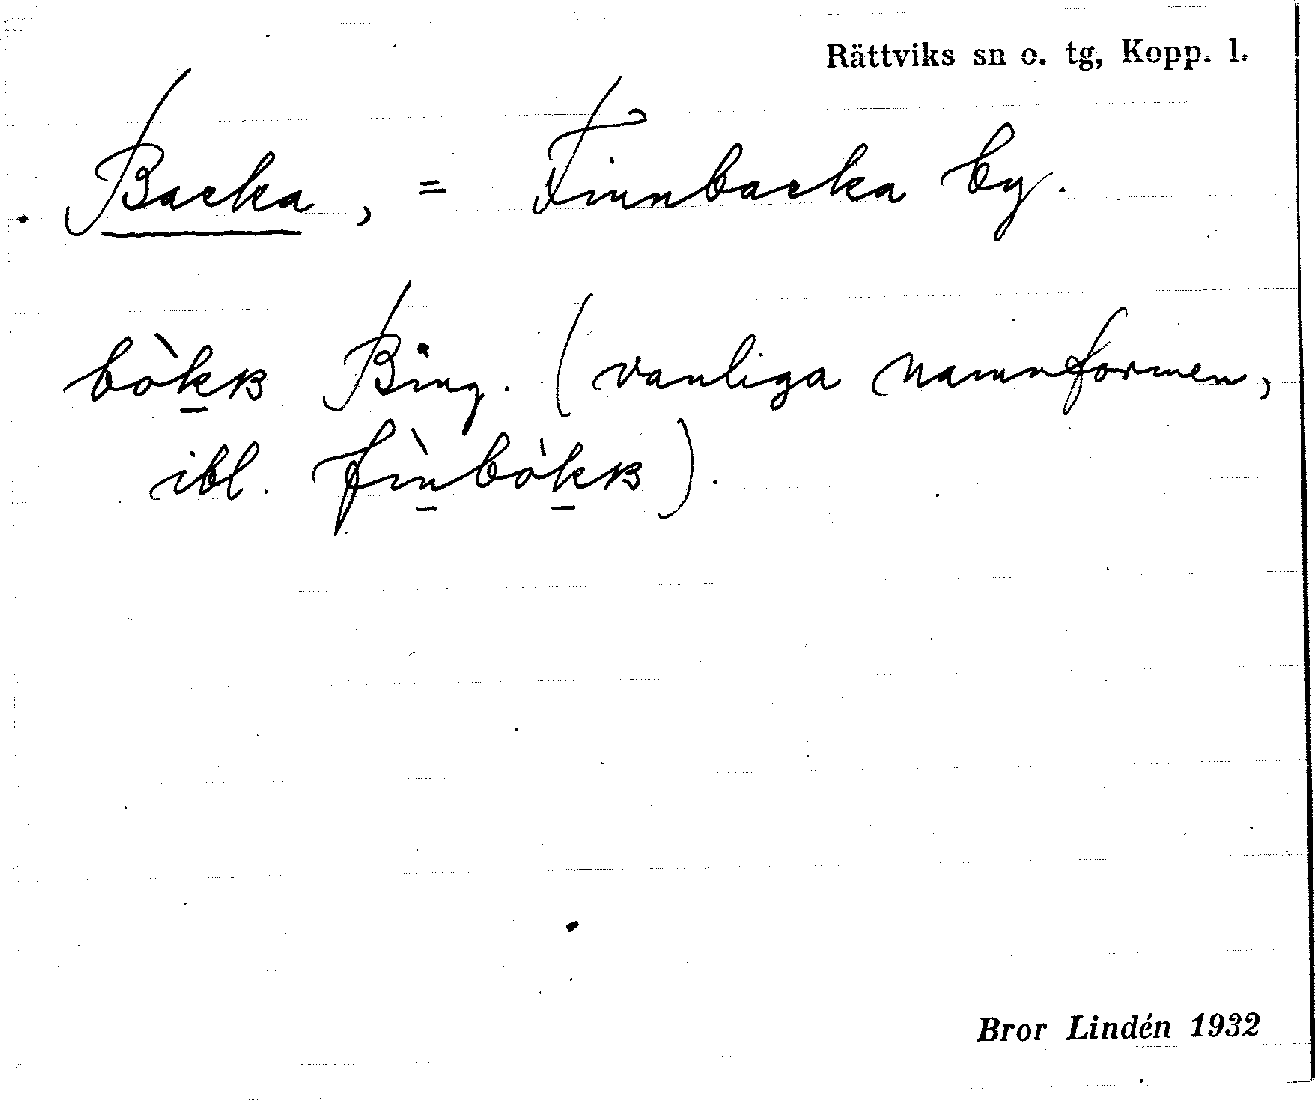 Rättviks sn o. tg, Kopp. l.
Backa, = Finnbacka by.
bòk̲ʙ Bing. (vanliga namnformen,
ibl. fìn̲bòk̲ʙ).
Bror Lindén 1932